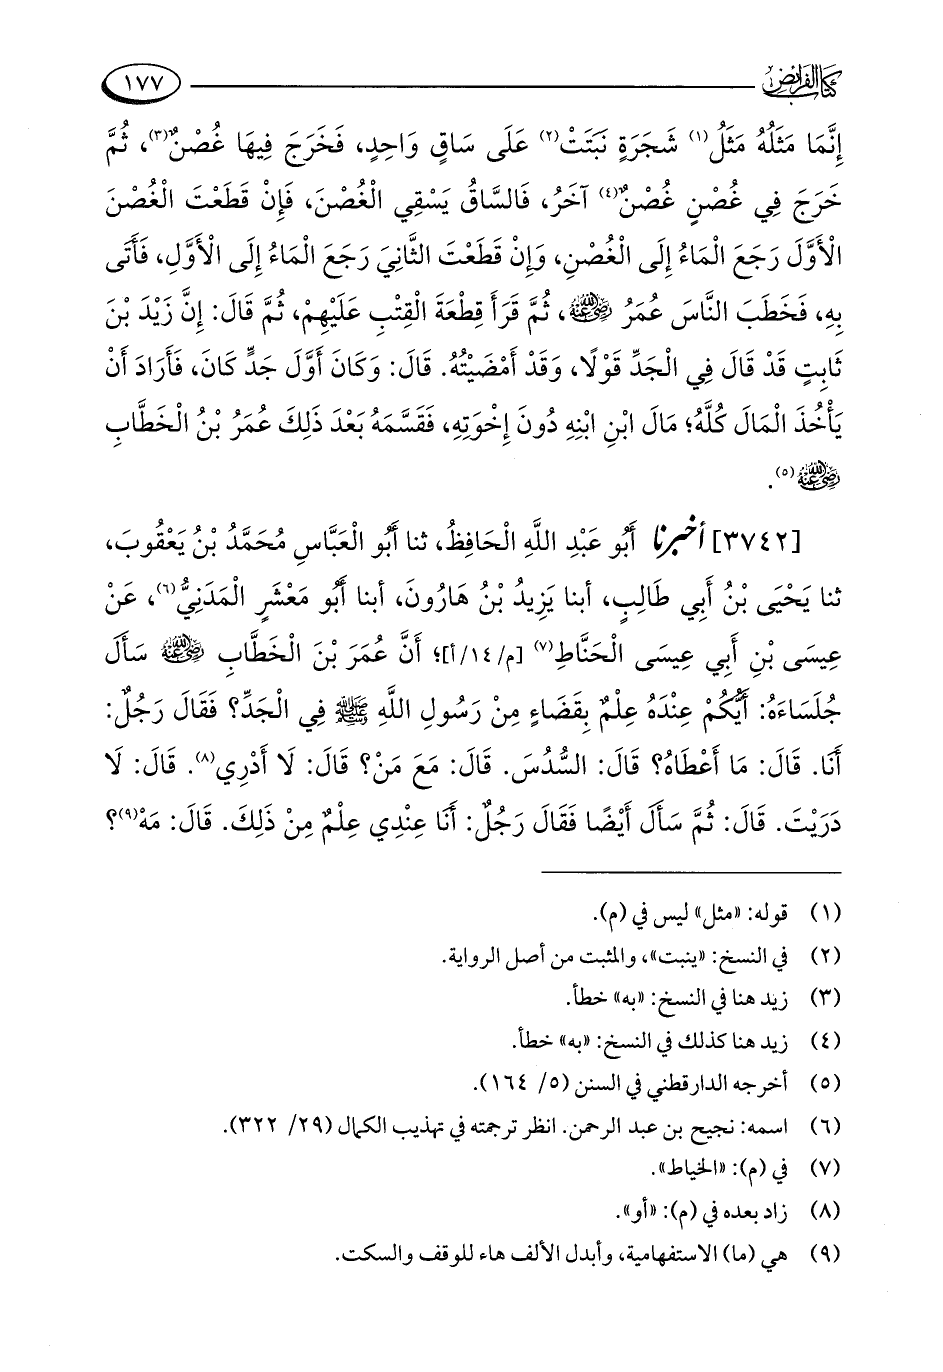 كتاب الفرائض ١٧٧
إِنَّمَا مَثَلُهُ مَثَلُ(١) شَجَرَةٍ نَبَتَتْ(٢) عَلَى سَاقٍ وَاحِدٍ، فَخَرَجَ فِيهَا غُصْنٌ(٣)، ثُمَّ
خَرَجَ فِي غُصْنٍ غُصْنٌ(٤) آخَرُ، فَالسَّاقُ يَسْقِي الْغُصْنَ، فَإِنْ قَطَعْتَ الْغُصْنَ
الْأَوَّلَ رَجَعَ الْمَاءُ إِلَى الْغُصْنِ، وَإِنْ قَطَعْتَ الثَّانِيَ رَجَعَ الْمَاءُ إِلَى الْأَوَّلِ، فَأَتَى
بِهِ، فَخَطَبَ النَّاسَ عُمَرُ رضي الله عنه، ثُمَّ قَرَأَ قِطْعَةَ الْقِتْبِ عَلَيْهِمْ، ثُمَّ قَالَ: إِنَّ زَيْدَ بْنَ
ثَابِتٍ قَدْ قَالَ فِي الْجَدِّ قَوْلًا، وَقَدْ أَمْضَيْتُهُ. قَالَ: وَكَانَ أَوَّلَ جَدٍّ كَانَ، فَأَرَادَ أَنْ
يَأْخُذَ الْمَالَ كُلَّهُ؛ مَالَ ابْنِ ابْنِهِ دُونَ إِخْوَتِهِ، فَقَسَّمَهُ بَعْدَ ذَلِكَ عُمَرُ بْنُ الْخَطَّابِ
رضي الله عنه(٥).
[٣٧٤٢] أخبرنا أَبُو عَبْدِ اللَّهِ الْحَافِظُ، ثنا أَبُو الْعَبَّاسِ مُحَمَّدُ بْنُ يَعْقُوبَ،
ثنا يَحْيَى بْنُ أَبِي طَالِبٍ، أبنا يَزِيدُ بْنُ هَارُونَ، أبنا أَبُو مَعْشَرٍ الْمَدَنِيُّ(٦)، عَنْ
عِيسَى بْنِ أَبِي عِيسَى الْحَنَّاطِ(٧) [م/١٤/أ]؛ أَنَّ عُمَرَ بْنَ الْخَطَّابِ رضي الله عنه سَأَلَ
جُلَسَاءَهُ: أَيُّكُمْ عِنْدَهُ عِلْمٌ بِقَضَاءٍ مِنْ رَسُولِ اللَّهِ ﷺ فِي الْجَدِّ؟ فَقَالَ رَجُلٌ:
أَنَا. قَالَ: مَا أَعْطَاهُ؟ قَالَ: السُّدُسَ. قَالَ: مَعَ مَنْ؟ قَالَ: لَا أَدْرِي(٨). قَالَ: لَا
دَرَيْتَ. قَالَ: ثُمَّ سَأَلَ أَيْضًا فَقَالَ رَجُلٌ: أَنَا عِنْدِي عِلْمٌ مِنْ ذَلِكَ. قَالَ: مَهْ(٩)؟
(١) قوله: «مثل» ليس في (م).
(٢) في النسخ: «ينبت»، والمثبت من أصل الرواية.
(٣) زيد هنا في النسخ: «به» خطأ.
(٤) زيد هنا كذلك في النسخ: «به» خطأ.
(٥) أخرجه الدارقطني في السنن (٥/ ١٦٤).
(٦) اسمه: نجيح بن عبد الرحمن. انظر ترجمته في تهذيب الكمال (٢٩/ ٣٢٢).
(٧) في (م): «الخياط».
(٨) زاد بعده في (م): «أو».
(٩) هي (ما) الاستفهامية، وأبدل الألف هاء للوقف والسكت.